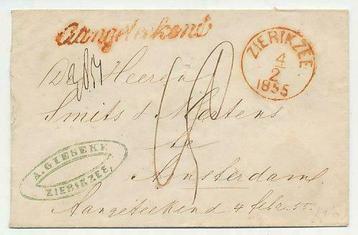 Aangetekend
ZIERIKZEE
4
2
1855
De Heeren
Smits & Mertens
te
Amsterdam
Aangeteekend 4 febr. 55
A. GIESEKE
ZIERIKZEE.